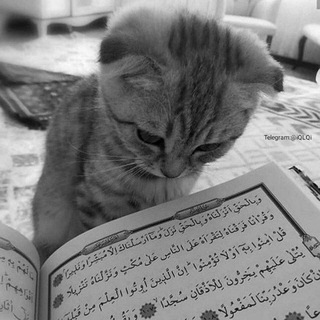 Telegram:@iQLQi
وَبِالْحَقِّ أَنْزَلْنَاهُ وَبِالْحَقِّ نَزَلَ وَمَا أَرْسَلْنَاكَ إِلَّا مُبَشِّرًا وَنَذِيرًا
وَقُرْآنًا فَرَقْنَاهُ لِتَقْرَأَهُ عَلَى النَّاسِ عَلَى مُكْثٍ وَنَزَّلْنَاهُ تَنْزِيلًا
قُلْ آمِنُوا بِهِ أَوْ لَا تُؤْمِنُوا إِنَّ الَّذِينَ أُوتُوا الْعِلْمَ مِنْ قَبْلِهِ
يُتْلَى عَلَيْهِمْ يَخِرُّونَ لِلْأَذْقَانِ سُجَّدًا
كَانَ وَعْدُ رَبِّنَا لَمَفْعُولًا